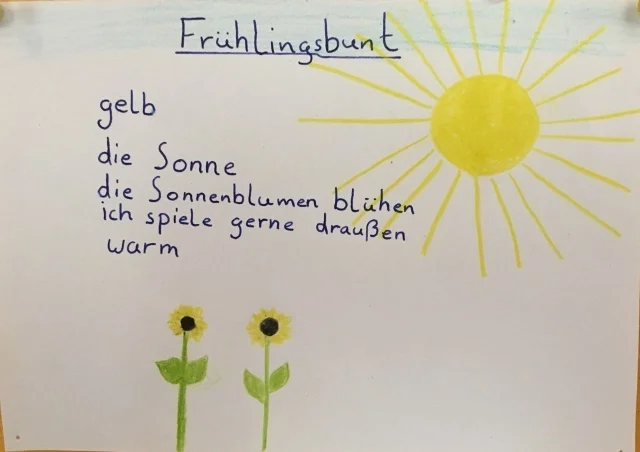 Frühlingsbunt
gelb
die Sonne
die Sonnenblumen blühen
ich spiele gerne draußen
warm